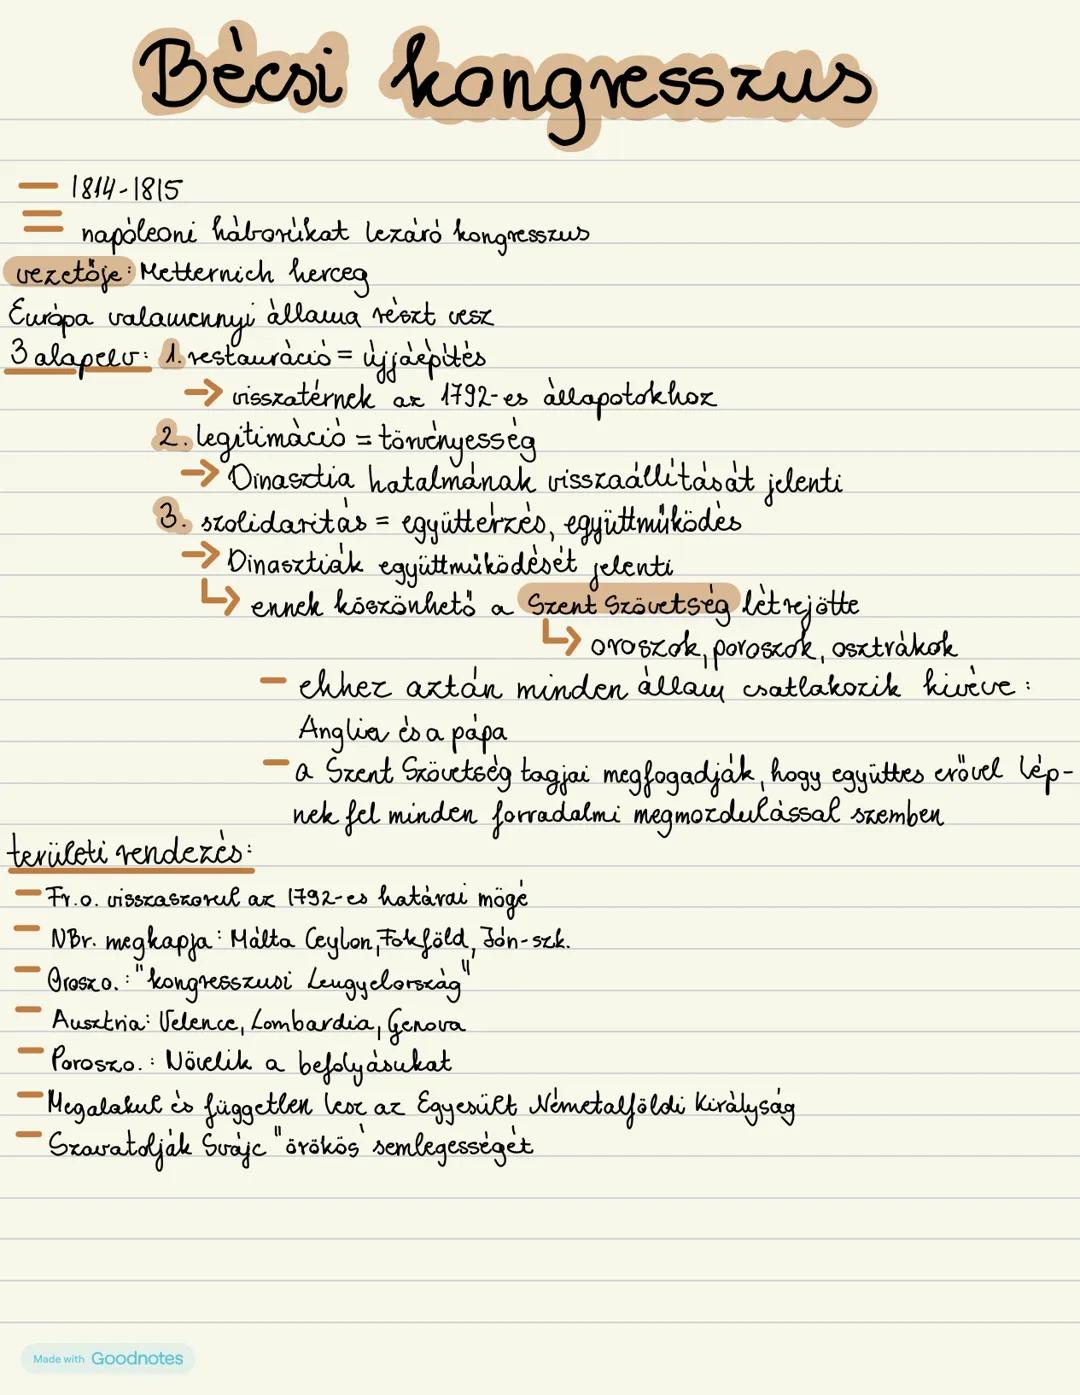 Bécsi kongresszus
— 1814-1815
= napóleoni háborúkat lezáró kongresszus
vezetője: Metternich herceg
Európa valamennyi állama részt vesz
3 alapelv: 1. restauráció = újjáépítés
→ visszatérnek az 1792-es állapotokhoz
2. legitimáció = törvényesség
→ Dinasztia hatalmának visszaállítását jelenti
3. szolidaritás = együttérzés, együttműködés
→ Dinasztiák együttműködését jelenti
↳ ennek köszönhető a Szent Szövetség létrejötte
↳ oroszok, poroszok, osztrákok
— ehhez aztán minden állam csatlakozik kivéve:
Anglia és a pápa
— a Szent Szövetség tagjai megfogadják, hogy együttes erővel lép-
nek fel minden forradalmi megmozdulással szemben
területi rendezés:
— Fr.o. visszaszorul az 1792-es határai mögé
— NBr. megkapja: Málta Ceylon, Fokföld, Jón-szk.
— Oroszo.: "kongresszusi Lengyelország"
— Ausztria: Velence, Lombardia, Genova
— Poroszo.: Növelik a befolyásukat
— Megalakul és független lesz az Egyesült Németalföldi Királyság
— Szavatolják Svájc "örökös" semlegességét
Made with Goodnotes